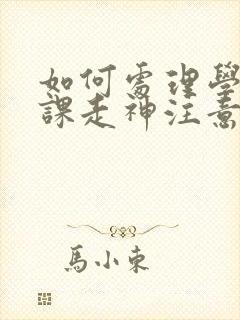 如何處理學
課走神注意
馬小東